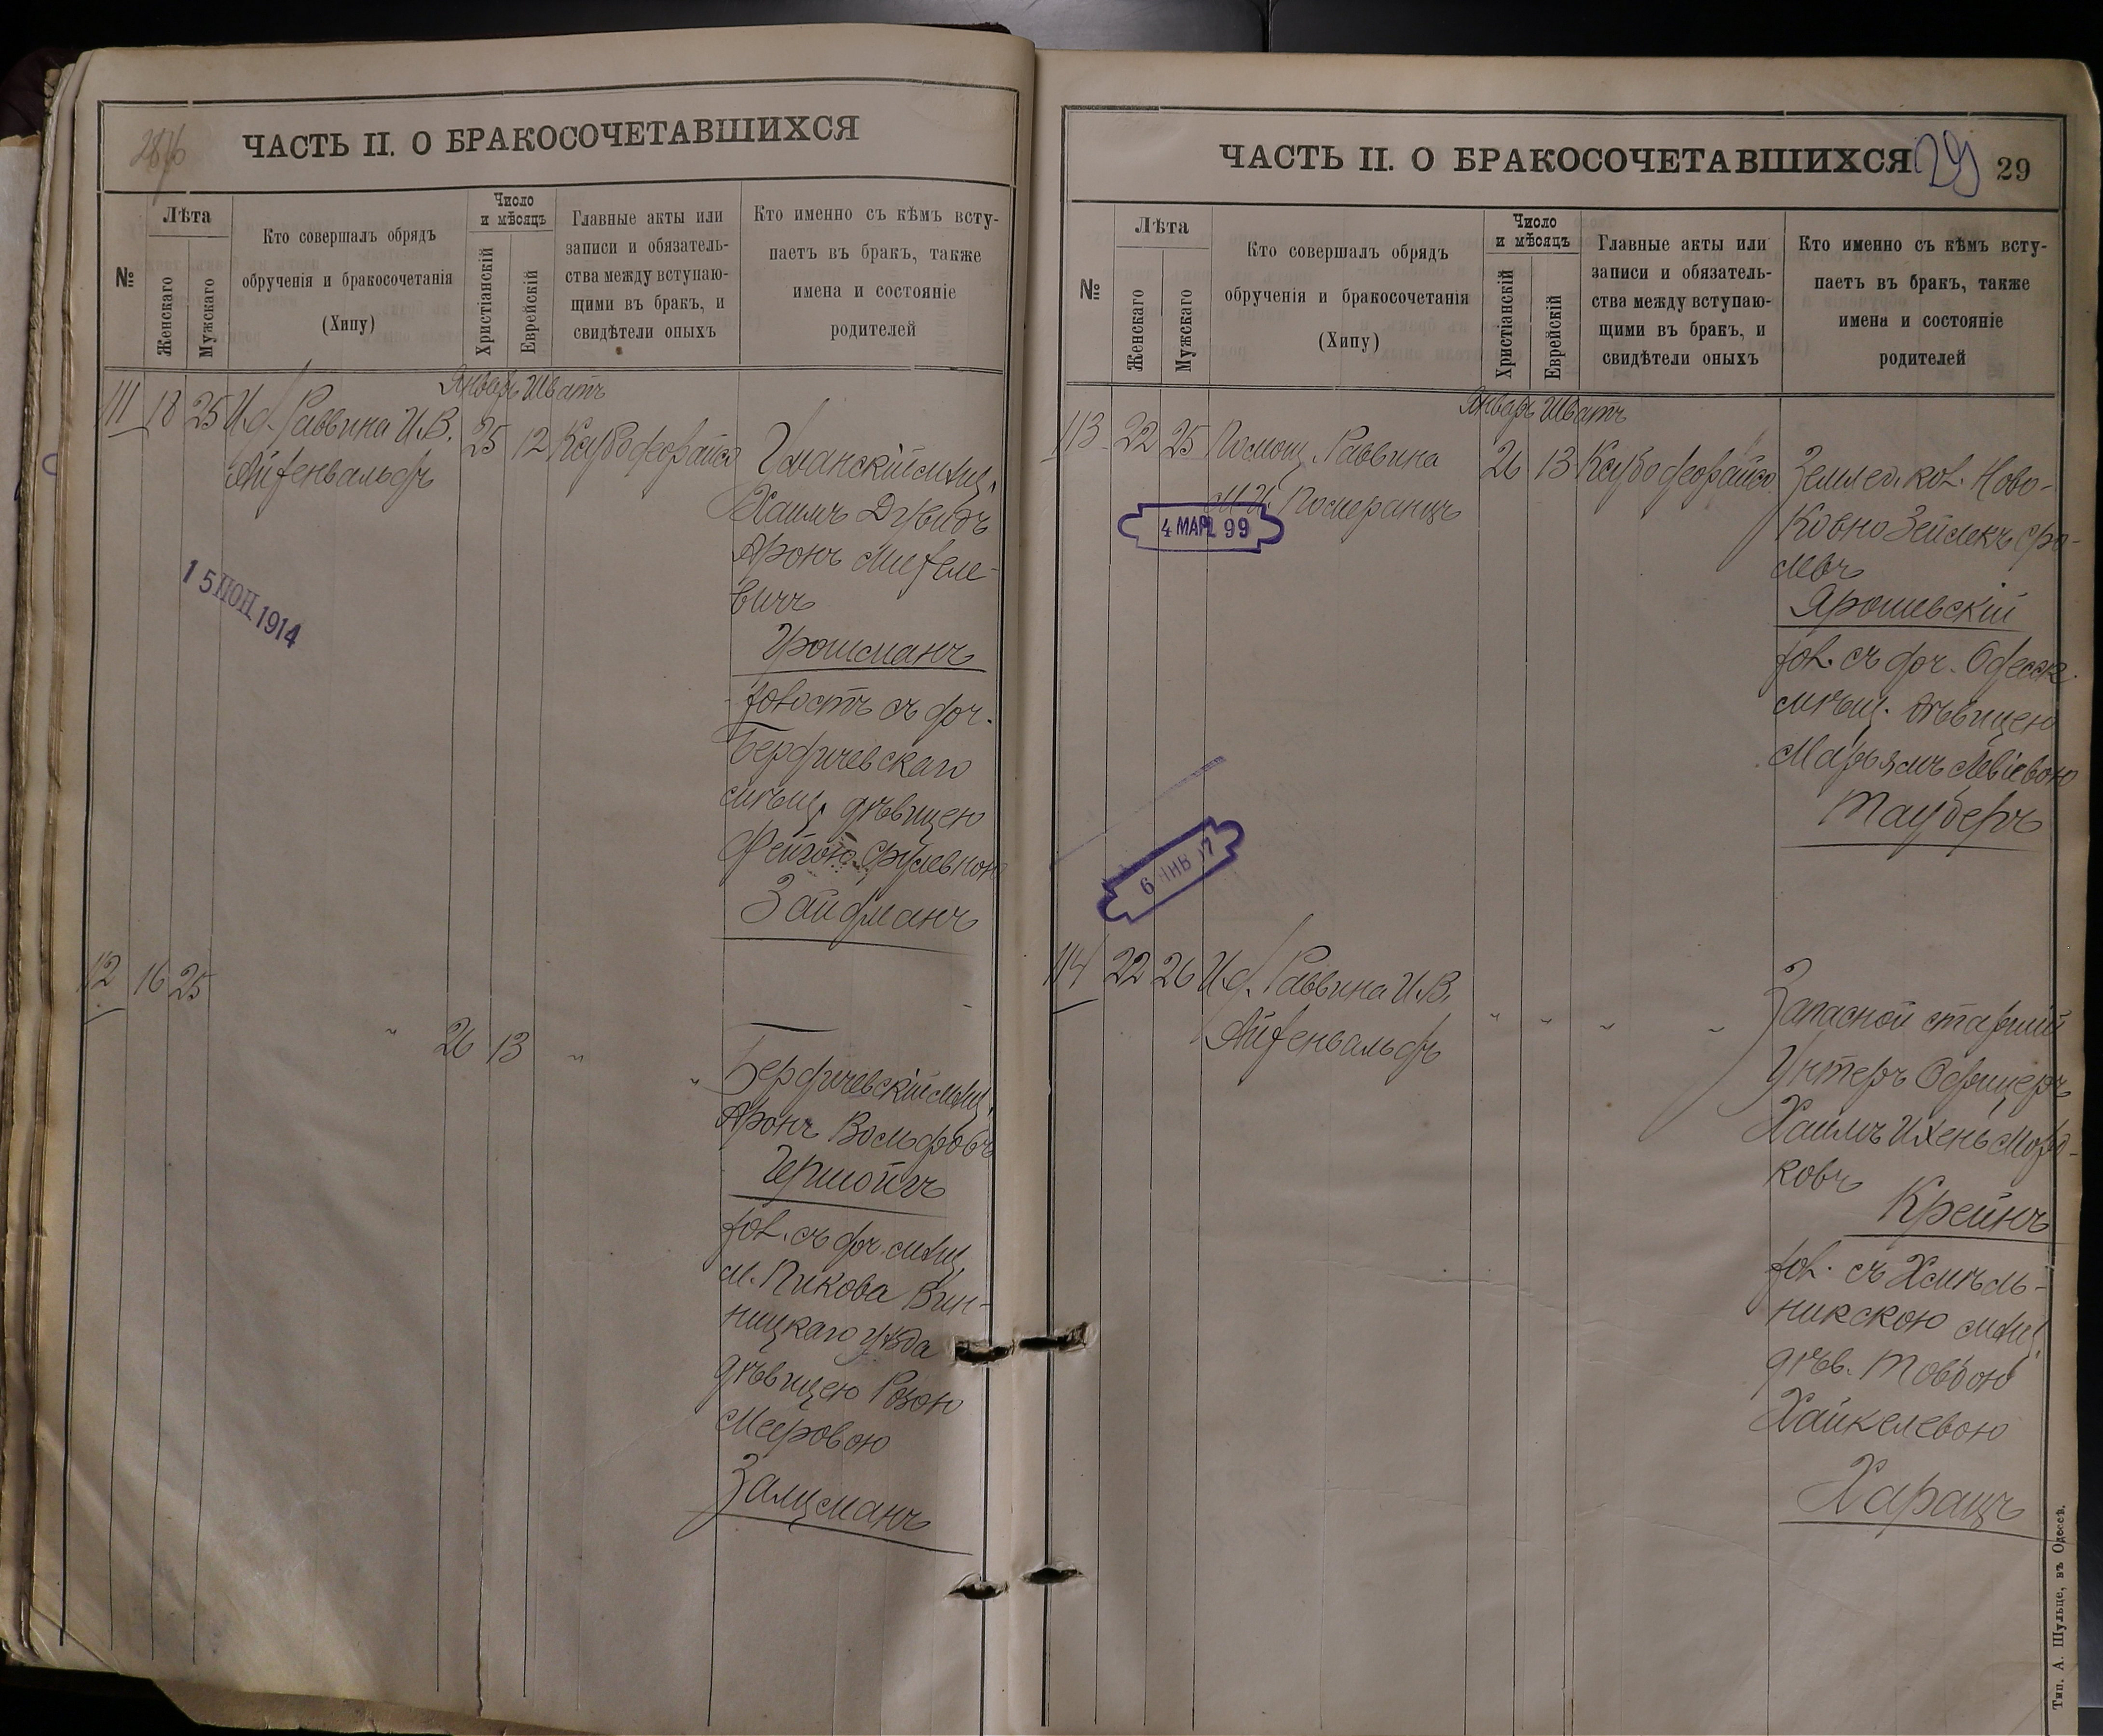 ЧАСТЬ II. О БРАКОСОЧЕТАВШИХСЯ
№
Лѣта
Женскаго
Мужскаго
Кто совершалъ обрядъ
обрученія и бракосочетанія
(Хипу)
Число
и мѣсяцъ
Христіанскій
Еврейскій
Главные акты или
записи и обязатель-
ства между вступаю-
щими въ бракъ, и
свидѣтели оныхъ
Кто именно съ кѣмъ всту-
паетъ въ бракъ, также
имена и состояніе
родителей
Январь Шватъ
111 18 25 И.д. Раввина И.В.
Айзенвальдъ
25 12
Уманскій мѣщ.
Хаимъ Дувидъ
Аронъ
вичъ
Гройсманъ
холостъ съ доч.
Бердичевскаго
мѣщ. дѣвицею
Фейгою Срулевною
Зайдманъ
15 ІЮН. 1914
12 16 25
" 26 13 " "
Бердичевскій мѣщ.
Аронъ Вольфовъ
хол. съ доч. мѣщ.
м. Пикова Вин-
ницкаго уѣзда
дѣвицею Розою
Мееровою
Залцманъ
ЧАСТЬ II. О БРАКОСОЧЕТАВШИХСЯ
29 29
№
Лѣта
Женскаго
Мужскаго
Кто совершалъ обрядъ
обрученія и бракосочетанія
(Хипу)
Число
и мѣсяцъ
Христіанскій
Еврейскій
Главные акты или
записи и обязатель-
ства между вступаю-
щими въ бракъ, и
свидѣтели оныхъ
Кто именно съ кѣмъ всту-
паетъ въ бракъ, также
имена и состояніе
родителей
Январь Шватъ
113 22 25 Помощ. Раввина
М.И. Померанцъ
26 13
Землед. кол. Ново-
Ковно Зейликъ Сро-
левъ
Ярошевскій
хол. съ доч. Одесск.
мѣщ. дѣвицею
Марьямъ Левіевою
Тауберъ
4 МАР. 99
6 ЯНВ 17
114 22 26 И.д. Раввина И.В.
Айзенвальдъ
" " " "
Запасной старшій
Унтеръ Офицеръ
Хаимъ Ихень Морд-
ковъ
Крейнъ
хол. съ Хмѣль-
никскою мѣщ.
дѣв. Товбою
Хайкелевою
Харацъ
Тип. А. Шульце, въ Одессѣ.